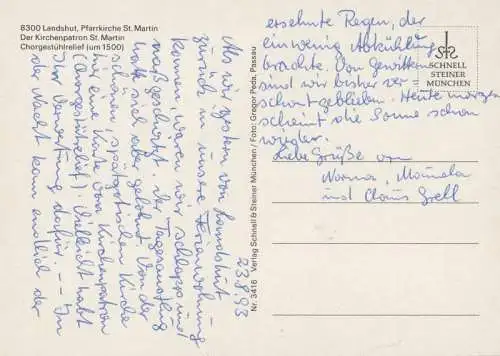 8300 Landshut, Pfarrkirche St. Martin
Der Kirchenpatron St. Martin
Chorgestühlrelief (um 1500)
23.8.93
Als wir gestern von Landshut
zurück in unsere Ferienwohnung
kamen, waren wir schlapp und
naßgeschwitzt. Der Tagesausflug
hatte sich aber gelohnt. Von der
schönen, spätgotischen Kirche
hier eine Karte vom Kirchenpatron
(Chorgestühlrelief). Vielleicht habt
Ihr Verwertung dafür. -- In
der Nacht kam endlich der
ersehnte Regen, der
ein wenig Abkühlung
brachte. Von Gewittern
sind wir bisher ver=
schont geblieben. Heute morgen
scheint die Sonne schon
wieder.
Liebe Grüße von
Norma, Manuela
und Claus Grell
Nr. 3416 Verlag Schnell & Steiner München / Foto: Gregor Peda, Passau
SCHNELL
STEINER
MÜNCHEN